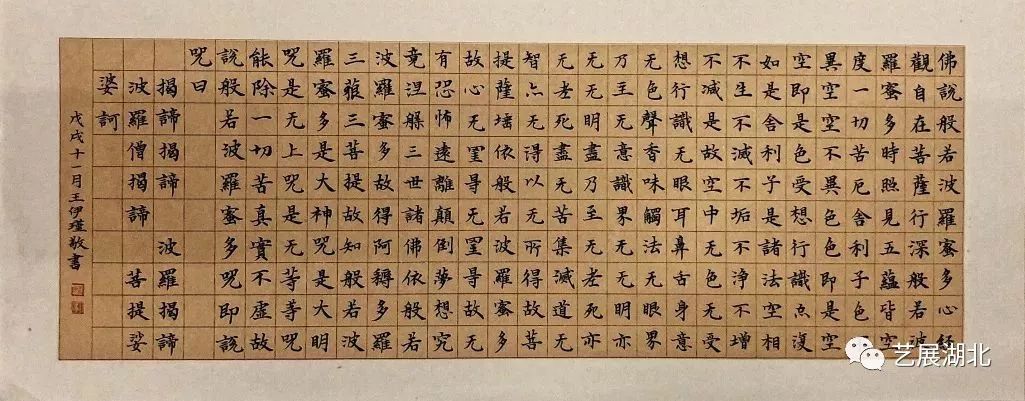 佛說般若波羅蜜多心経
觀自在菩薩行深般若波
羅蜜多時照見五蘊皆空
度一切苦厄舍利子色不
異空空不異色色即是空
空即是色受想行識亦復
如是舍利子是諸法空相
不生不滅不垢不淨不增
不減是故空中无色无受
想行識无眼耳鼻舌身意
无色聲香味觸法无眼界
乃至无意識界无无明亦
无无明盡乃至无老死亦
无老死盡无苦集滅道无
智亦无得以无所得故菩
提薩埵依般若波羅蜜多
故心无罣导无罣导故无
有恐怖遠離顛倒夢想究
竟涅槃三世諸佛依般若
波羅蜜多故得阿耨多羅
三藐三菩提故知般若波
羅蜜多是大神咒是大明
咒是无上咒是无等等咒
能除一切苦真實不虛故
說般若波羅蜜多咒即說
咒曰
揭諦揭諦 波羅揭諦
波羅僧揭諦 菩提娑
婆訶
戊戌十一月王伊瑾敬書
艺展湖北